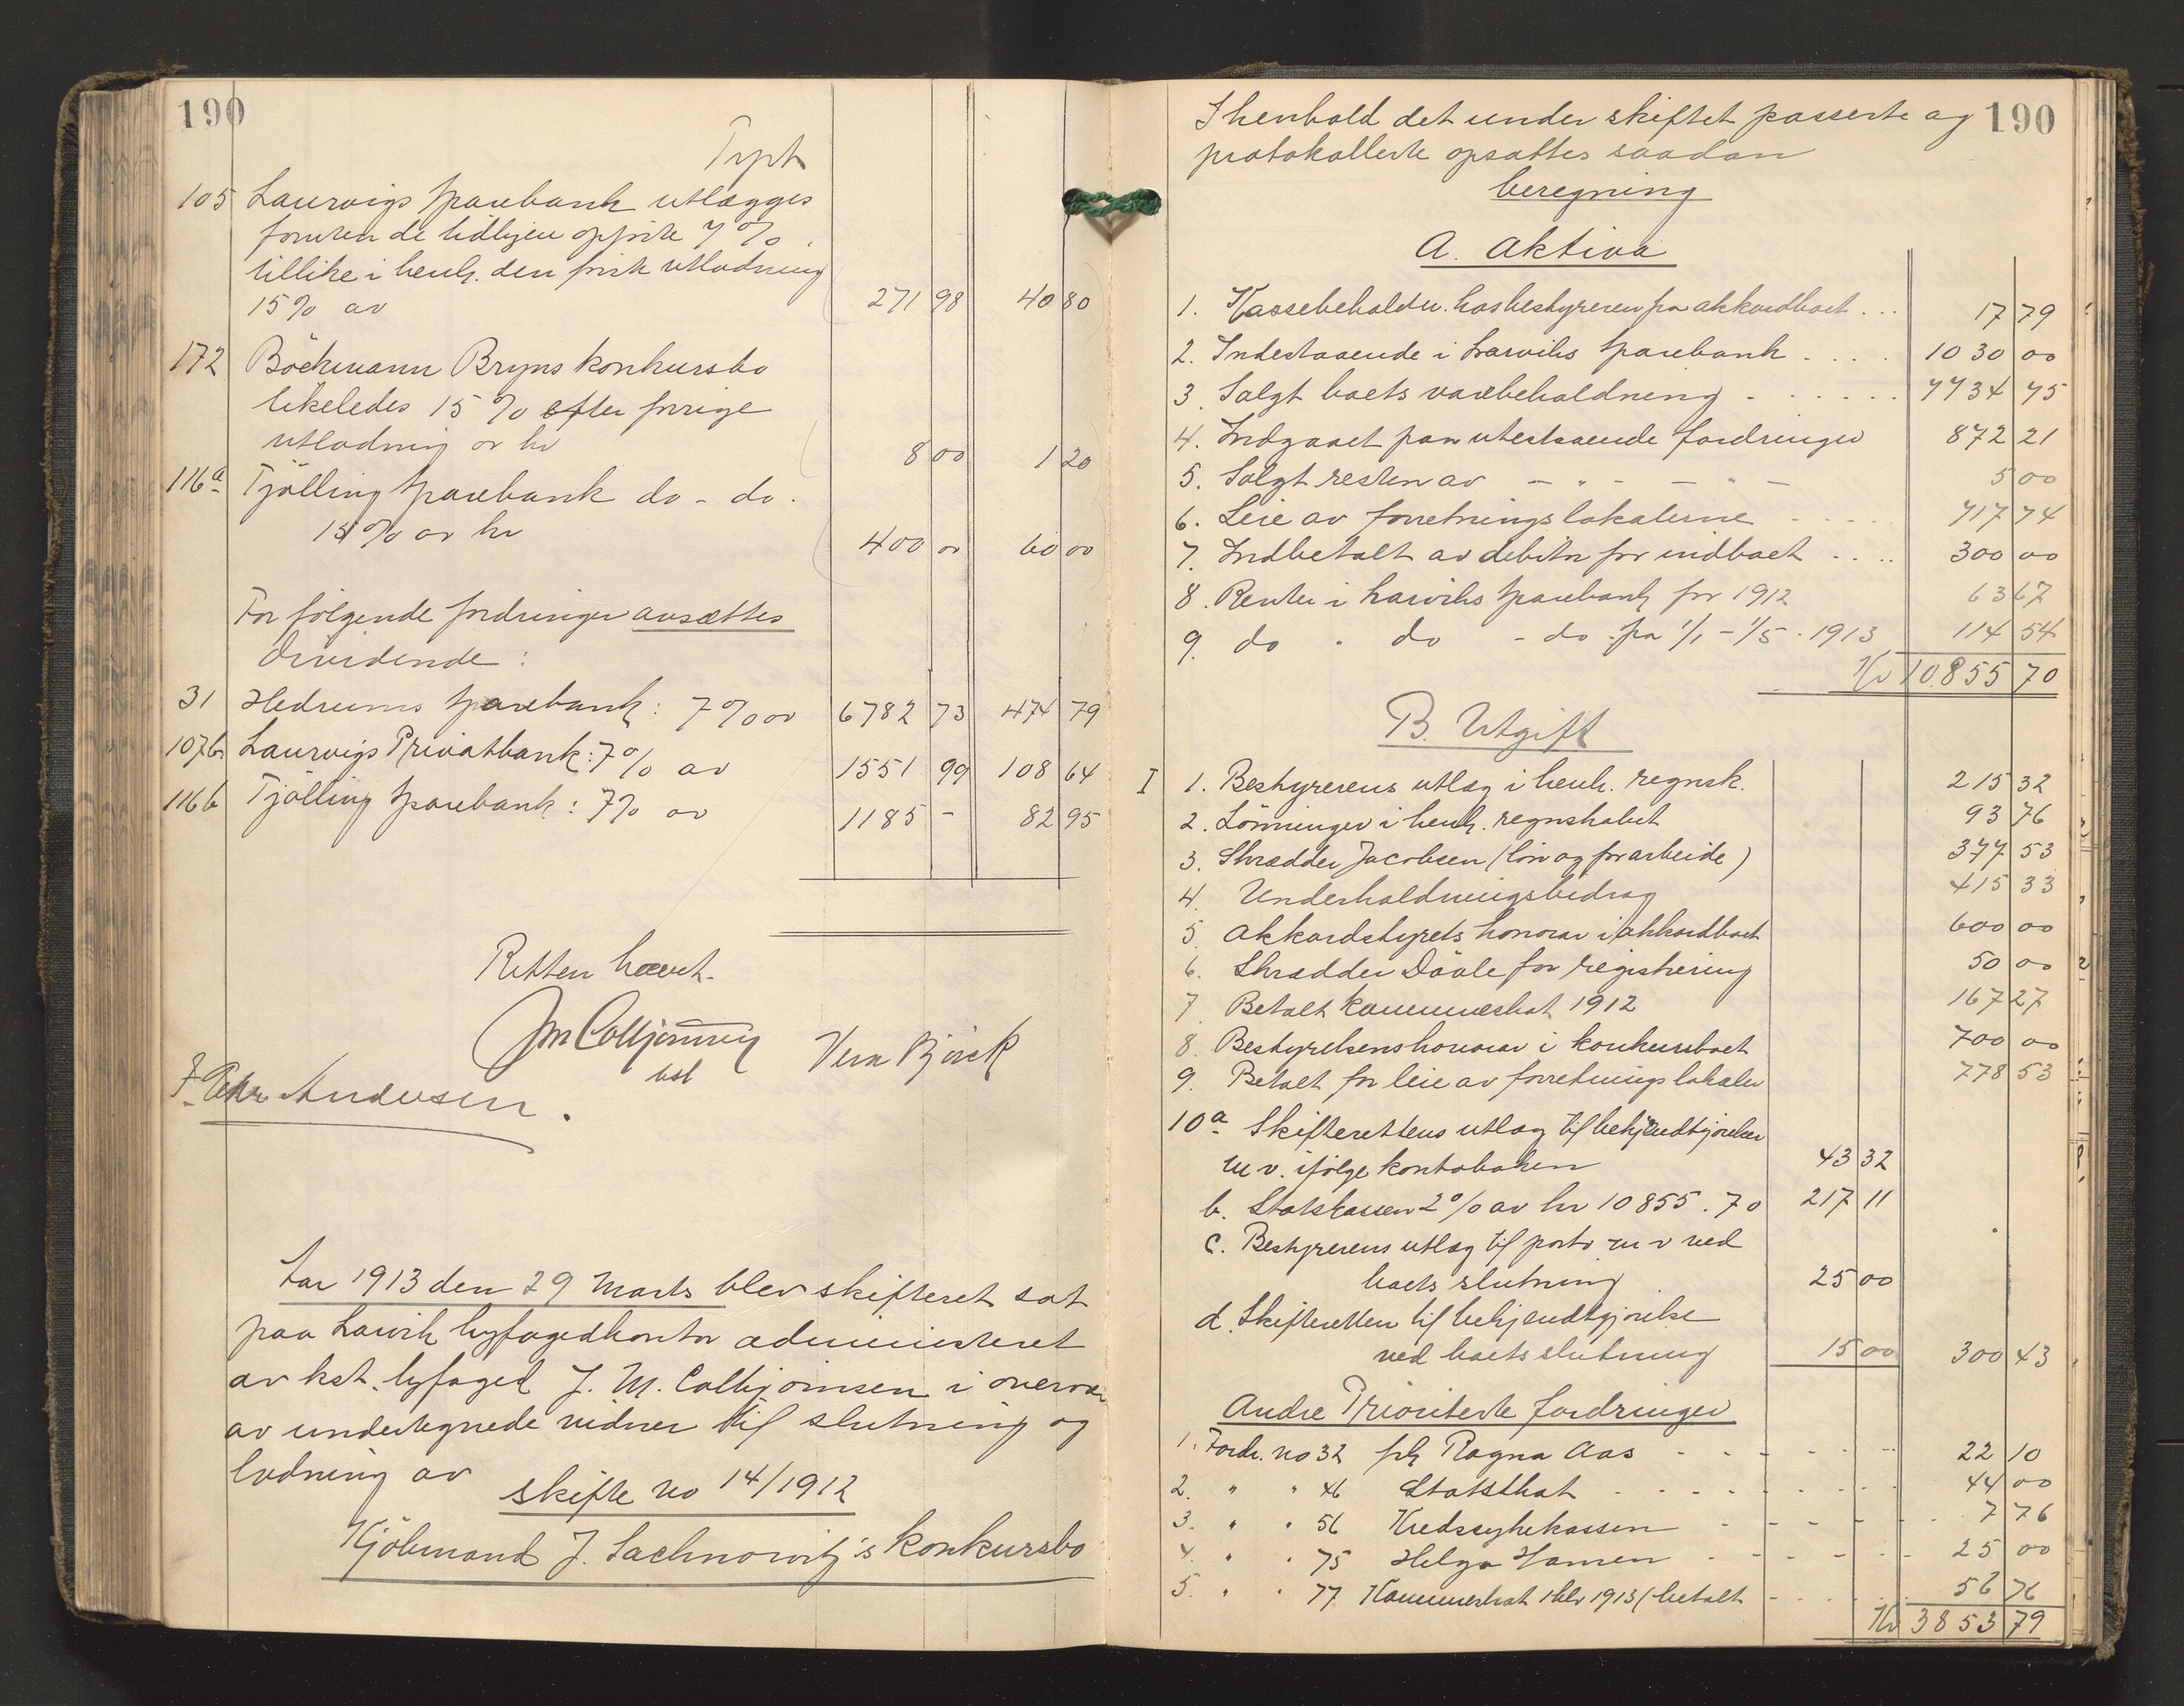 190
Trpt
105 Laurvigs sparebank utlægges
foruten de tidligere opførte 7%
tillike i henh. den første utlodning
15% av 271 98 40 80
172 Böckmann Bryns konkursbo
likeledes 15% efter forrige
utlodning av kr 8 00 1 20
116a Tjölling sparebank do - do.
15% av kr 400 00 60 00
For følgende fordringer avsættes
dividende:
31 Hedrums sparebank: 7% av 6782 73 474 79
107b. Laurvigs Privatbank: 7% av 1551 99 108 64
116b Tjölling sparebank: 7% av 1185 - 82 95
Retten hævet.
J M Colbjørnsen Vera Bjørck
kst
F. Chr Andersen.
Aar 1913 den 29 Marts blev skifteret sat
paa Larvik byfogedkontor administreret
av kst. byfoged J. M. Colbjørnsen i overvær
av undertegnede vidner til slutning og
lodning av
skifte no 14/1912
Kjöbmand J. Sachnowitz's konkursbo
190
I henhold det under skiftet passerte og
protokollerte opsattes saadan
beregning
A. Aktiva
1. Kassebeholdn. hos bestyreren fra akkordboet ... 17 79
2. Indestaaende i Larviks sparebank .... 1030 00
3. Solgt boets varebeholdning ...... 7734 75
4. Indgaaet paa utestaaende fordringer 872 21
5. Solgt resten av - " - - " - 5 00
6. Leie av forretningslokalerne .... 717 74
7. Indbetalt av debitor for indboet .... 300 00
8. Renter i Larviks sparebank for 1912 63 67
9. do " do - do fra 1/1 - 1/5 - 1913 114 54
Kr 10.855 70
B. Utgift
I 1. Bestyrerens utlæg i henh. regnsk. 215 32
2. Lönninger i henh. regnskabet 93 76
3. Skrædder Jacobsen (lön og forarbeide) 377 53
4. Underholdningsbidrag 415 33
5. Akkordstyrets honorar i akkordboet 600 00
6. Skrædder Dövle for registrering 50 00
7. Betalt kommuneskat 1912 167 27
8. Bestyrelsens honorar i konkursboet 700 00
9. Betalt for leie av forretningslokaler 778 53
10a Skifterettens utlæg til bekjendtgjörelser
m v. ifölge kontobohen 43 32
b. Statskassen 2% av kr 10855.70 217 11
c. Bestyrerens utlæg til porto m v ved
boets slutning 25 00
d. Skifteretten til bekjendtgjörelse
ved boets slutning 15 00 300 43
Andre Prioriterte fordringer
1. Fordr. no 32 frk Ragna Aas - - - - - 22 10
2. " " 46 Statsskat - - - - - 44 00
3. " " 56 Kredssykekassen - - - - - 7 76
4. " " 75 Helga Hansen - - - - - 25 00
5. " " 77 Kommuneskat 1 hlv 1913 (betalt - - - 56 76
Kr 3853 79